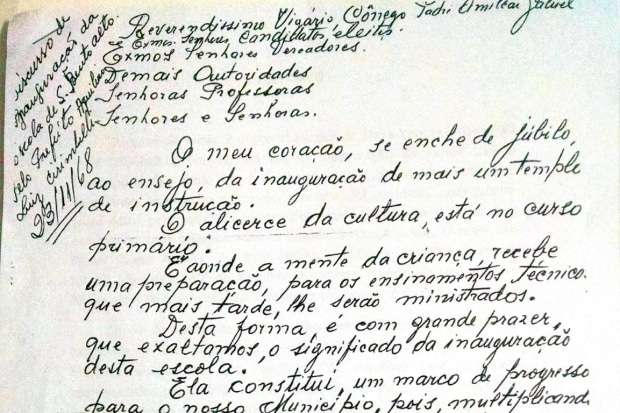 discurso de
inauguração da
escola de S. Bento alto
pelo Prefeito Aquilino
Luiz
23/11/68
Reverendissimo Vigário, Cônego Padre Amilcar
E Exmos. Senhores Candidatos eleitos.
Exmos Senhores Vereadores.
Demais Autoridades
Senhoras Professoras
Senhores e Senhoras.
O meu coração, se enche de júbilo,
ao ensejo, da inauguração de mais um templo
de instrução.
O alicerce da cultura, está no curso
primário.
É aonde a mente da criança, recebe
uma preparação, para os ensinamentos técnico.
que mais tarde, lhe serão ministrados.
Desta forma, é com grande prazer,
que exaltamos, o significado da inauguração
desta escola.
Ela constitui, um marco de progresso
para o nosso Município, pois, multiplicand